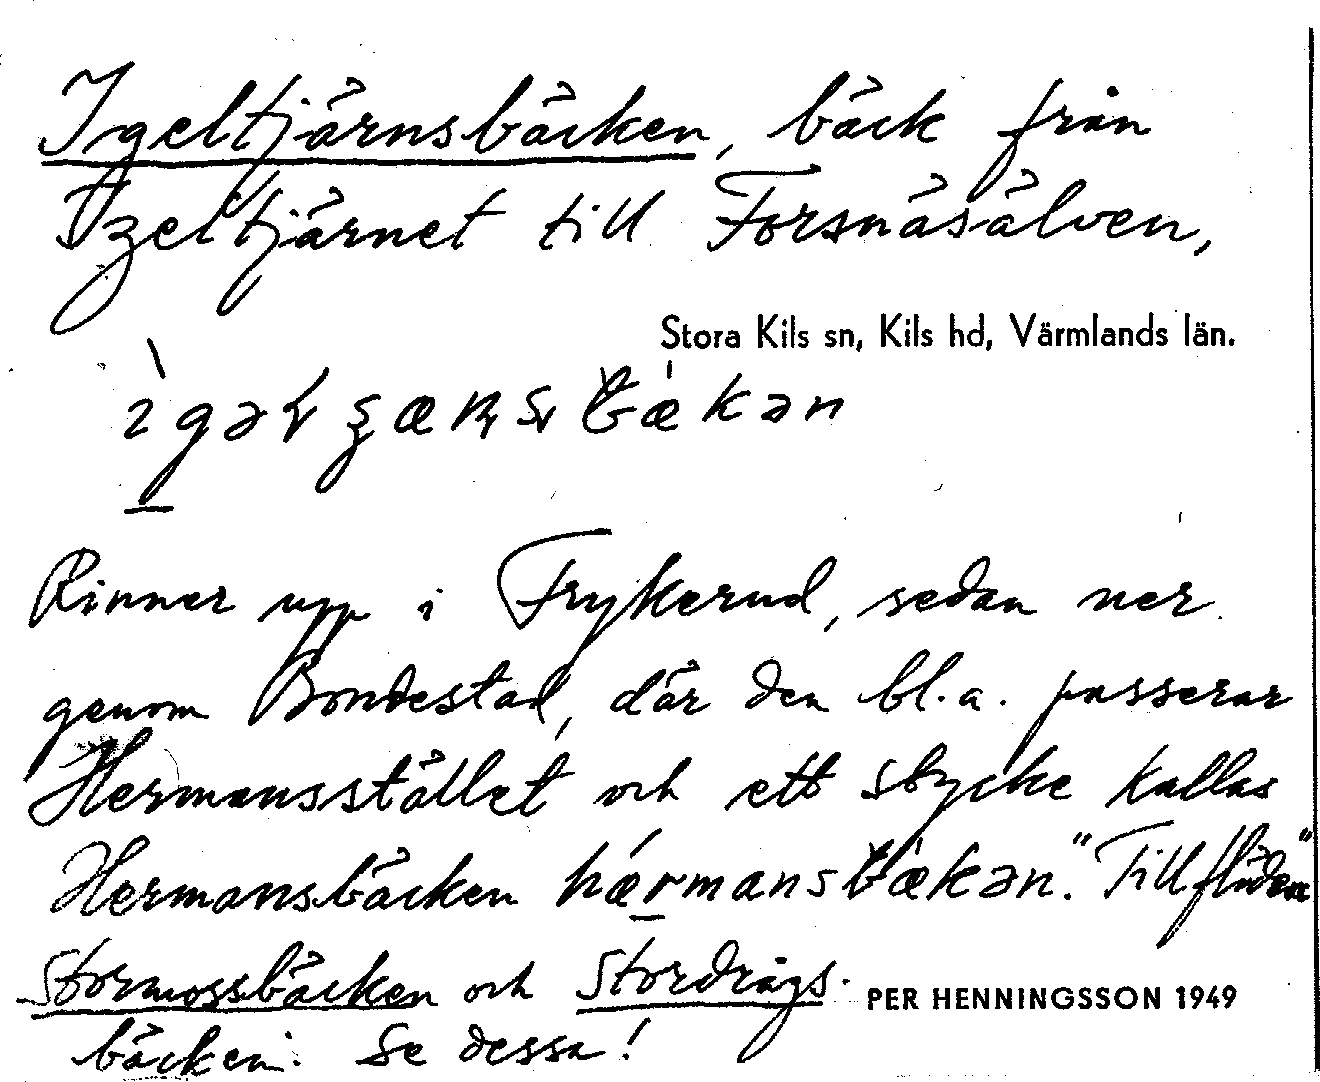 Igeltjärnsbäcken, bäck från
Igeltjärnet till Forsnäsälven,
Stora Kils sn, Kils hd, Värmlands län.
Rinner upp i Frykerud, sedan ner
genom Bondestad, där den bl.a. passerar
Hermansstället och ett stycke kallas
Hermansbäcken hærmansbækən. "Tillflöden"
Stormossbäcken och Stordrågs-
PER HENNINGSSON 1949
bäcken. Se dessa!